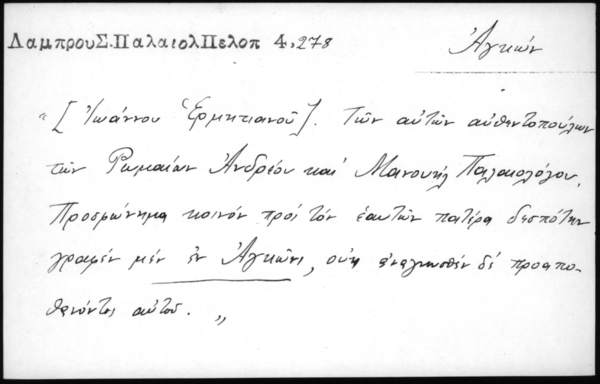 ΛαμπρουΣ.ΠαλαιολΠελοπ 4,278
Ἀγκών
"[Ἰωάννου Ἑρμητιανοῦ]. Τῶν αὐτῶν αὐθεντοπούλων
τῶν Ρωμαίων Ἀνδρέου καὶ Μανουὴλ Παλαιολόγου.
Προσφώνημα κοινόν πρὸς τόν ἑαυτῶν πατέρα δεσπότην
γραφέν μέν ἐν Ἀγκῶνι, οὐκ ἀναγνωσθέν δέ προαπο-
θανόντος αὐτοῦ. „